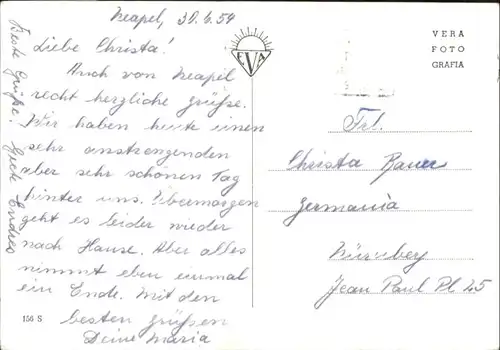 Neapel, 30.6.54
Liebe Christa!
Auch von Neapel
recht herzliche Grüße.
Wir haben heute einen
sehr anstrengenden
aber sehr schönen Tag
hinter uns. Übermorgen
geht es leider wieder
nach Hause. Aber alles
nimmt eben einmal
ein Ende. Mit den
besten Grüßen
Deine Maria
Beste Grüße. Endres
156 S
EVA
VERA
FOTO
GRAFIA
Frl.
Christa Bauer
Germania
Nürnberg
Jean Paul Pl 45